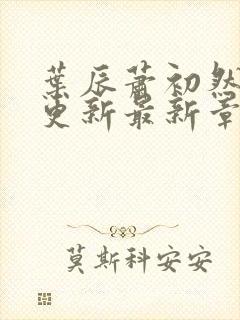 葉辰蕭初然
更新最新章
莫斯科安安